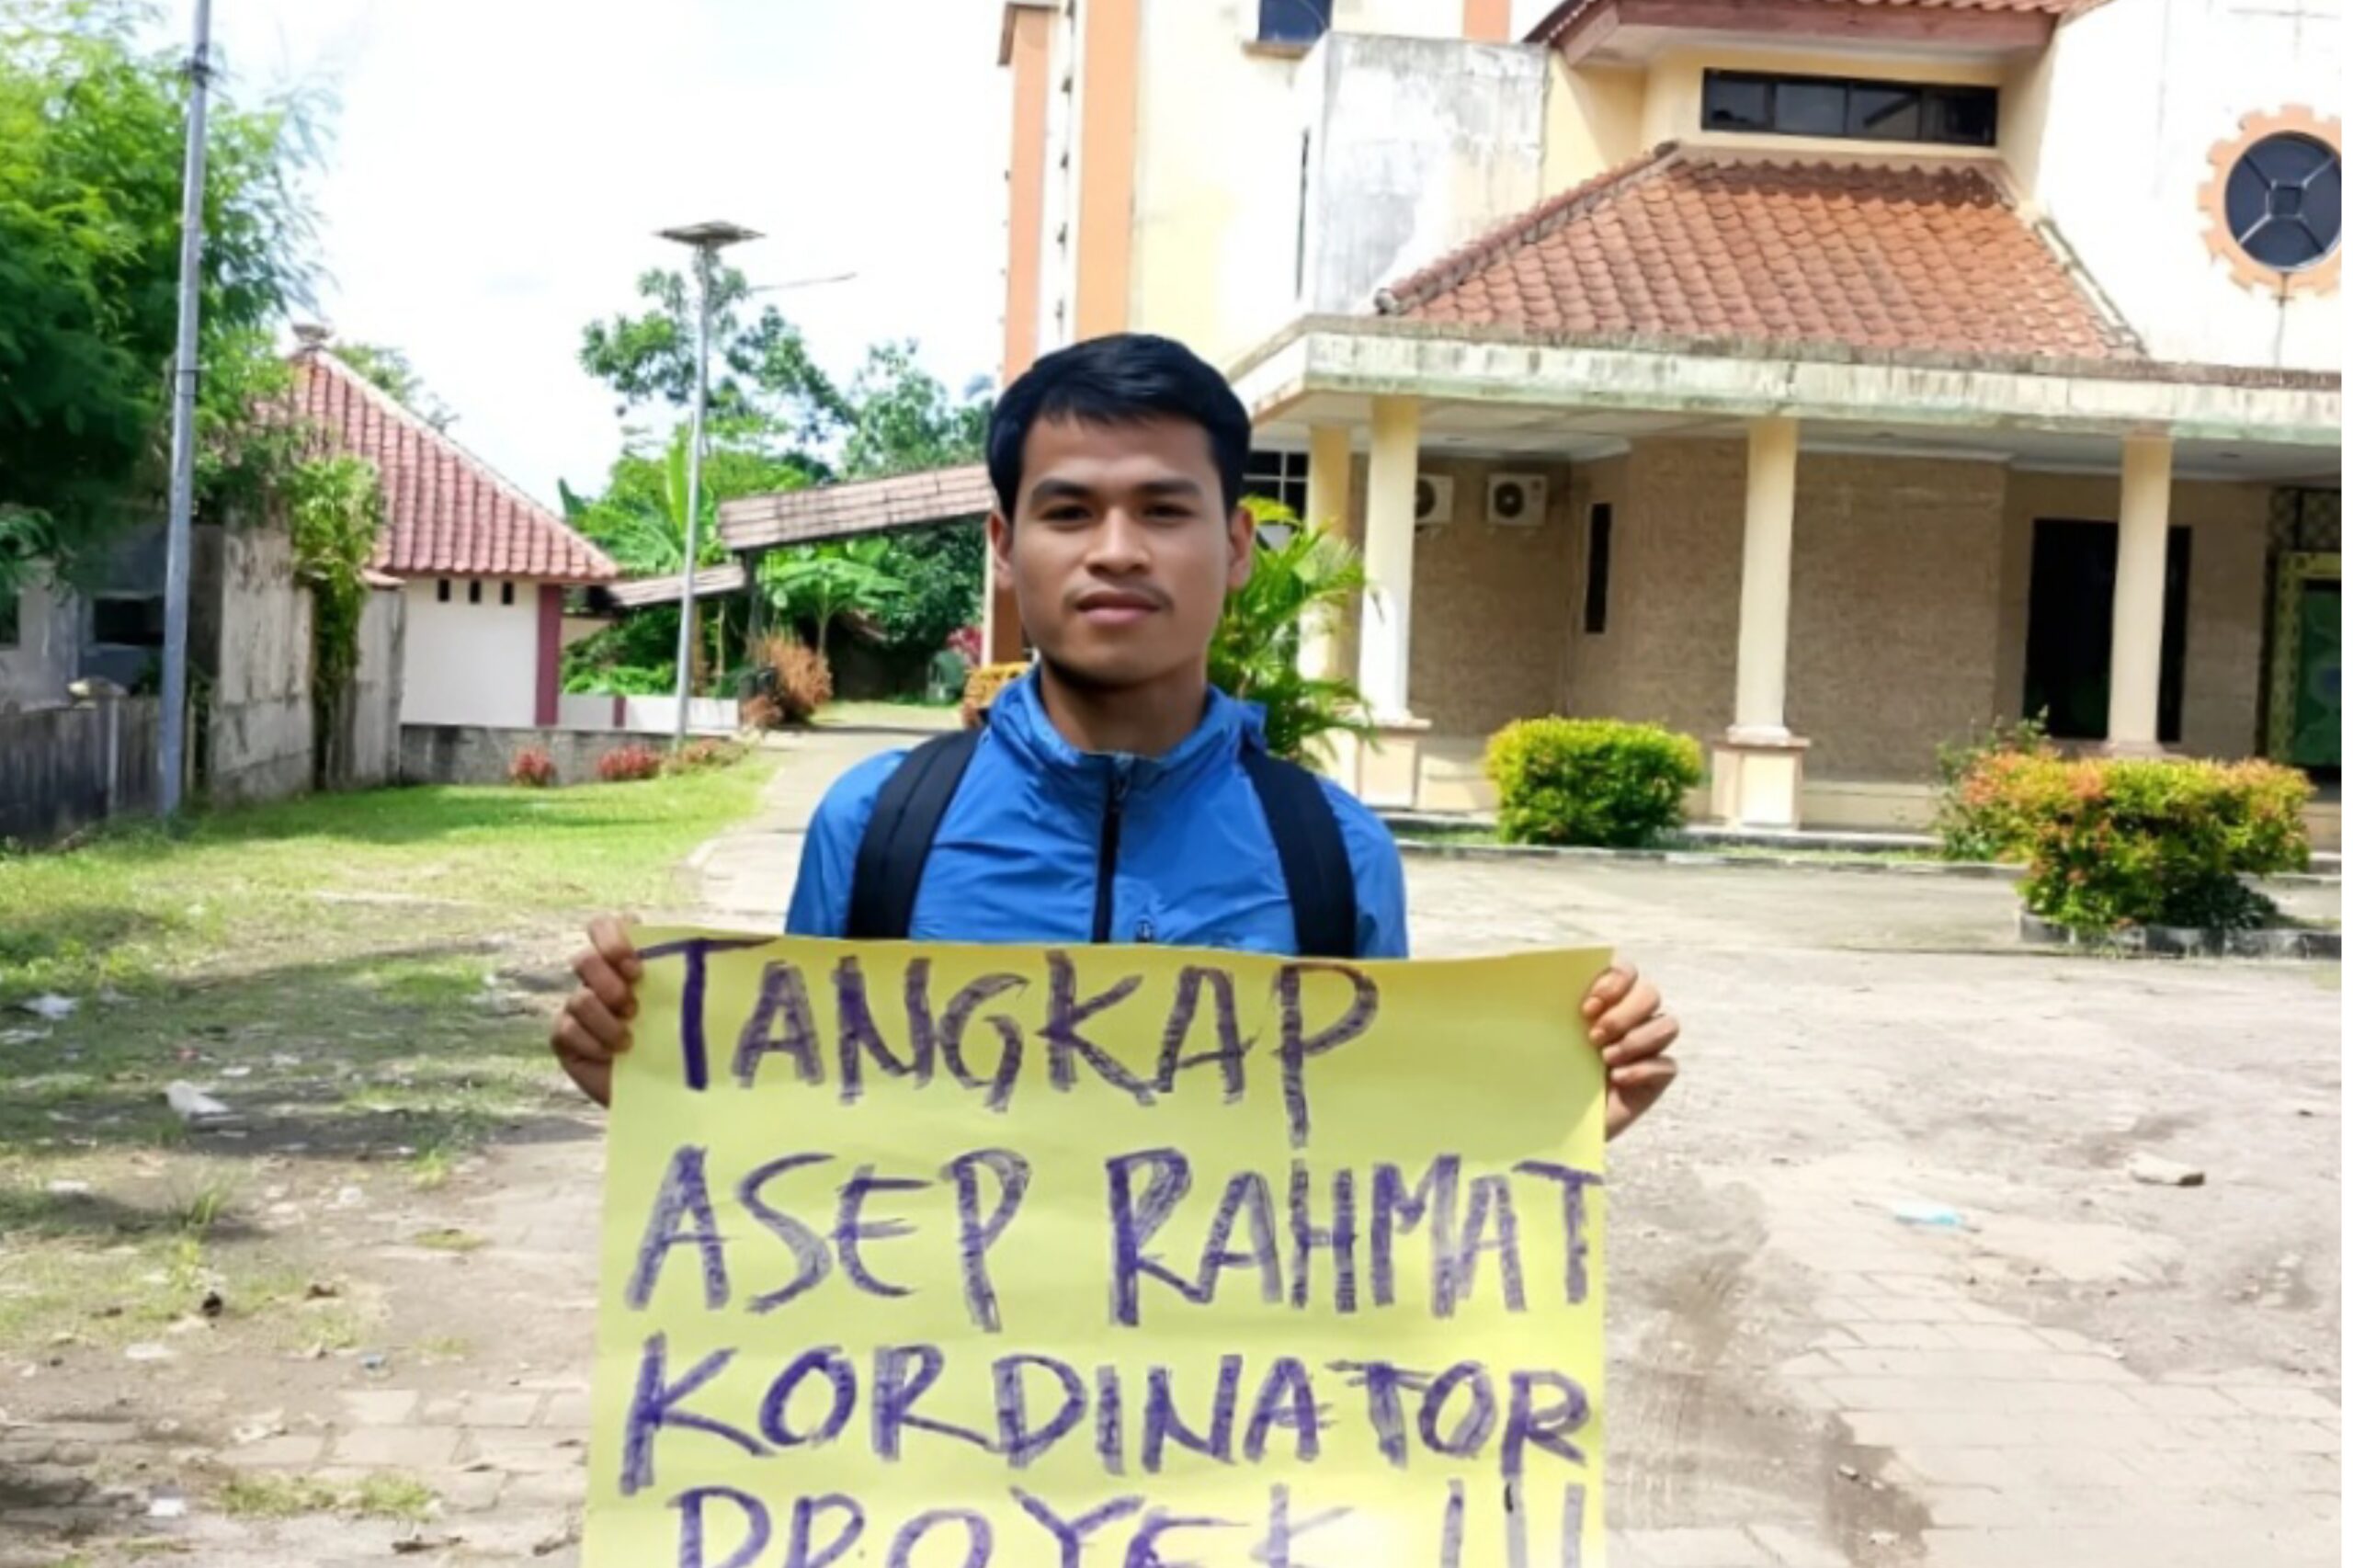 TANGKAP
ASEP RAHMAT
KORDINATOR
PROYEK !!!